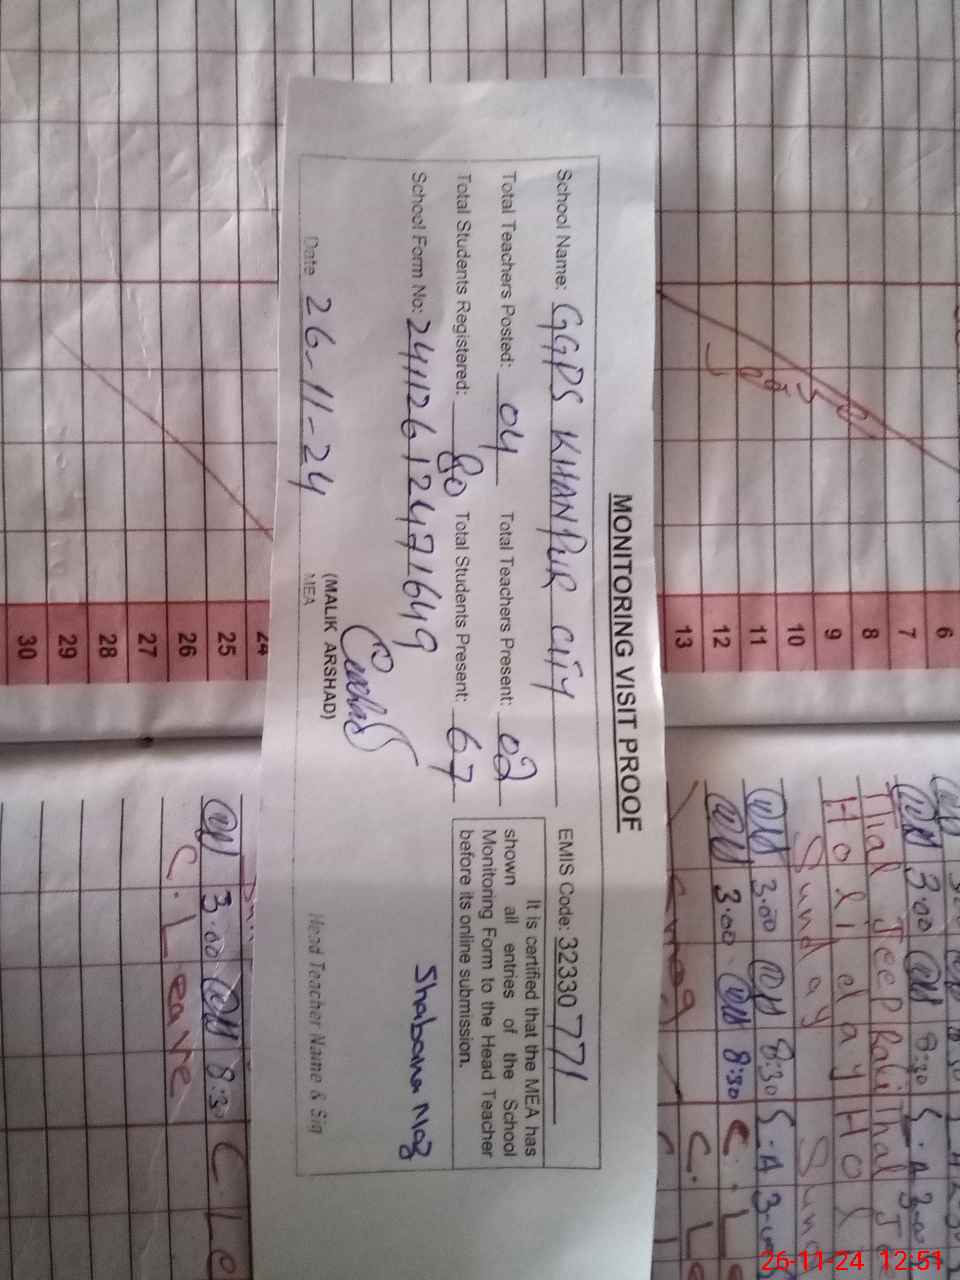 MONITORING VISIT PROOF
School Name: GGPS KHANPUR CITY EMIS Code: 32330771
Total Teachers Posted: 04 Total Teachers Present: 02
Total Students Registered: 80 Total Students Present: 67
School Form No:
It is certified that the MEA has
shown all entries of the School
Monitoring Form to the Head Teacher
before its online submission.
Shabana Naz
(MALIK ARSHAD)
MEA
Date 26-11-24
Head Teacher Name & Sig
6
7
8
9
10
11
12
13
24
25
26
27
28
29
30
3:00 8:30
Thal Jeep Rali Thal
Holiday Hol
Sunday Sund
3:00 8:30 S.A 3:00
3:00 8:30 C.L
3:00 8:30 C.Le
C.Leave
26-11-24 12:51